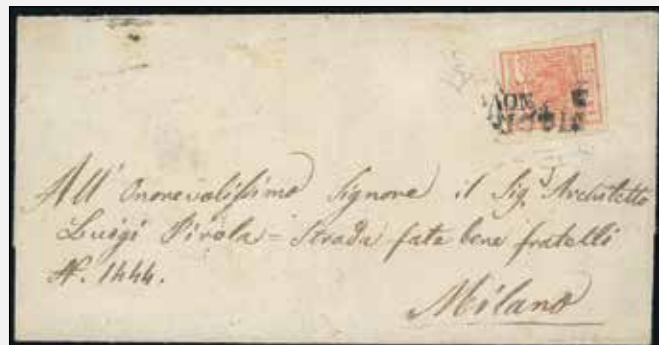 NOV
All' Onorevolissimo Signore il Sig.r Architetto
Luigi Pirola = Strada fate bene fratelli
N. 1444.
Milano